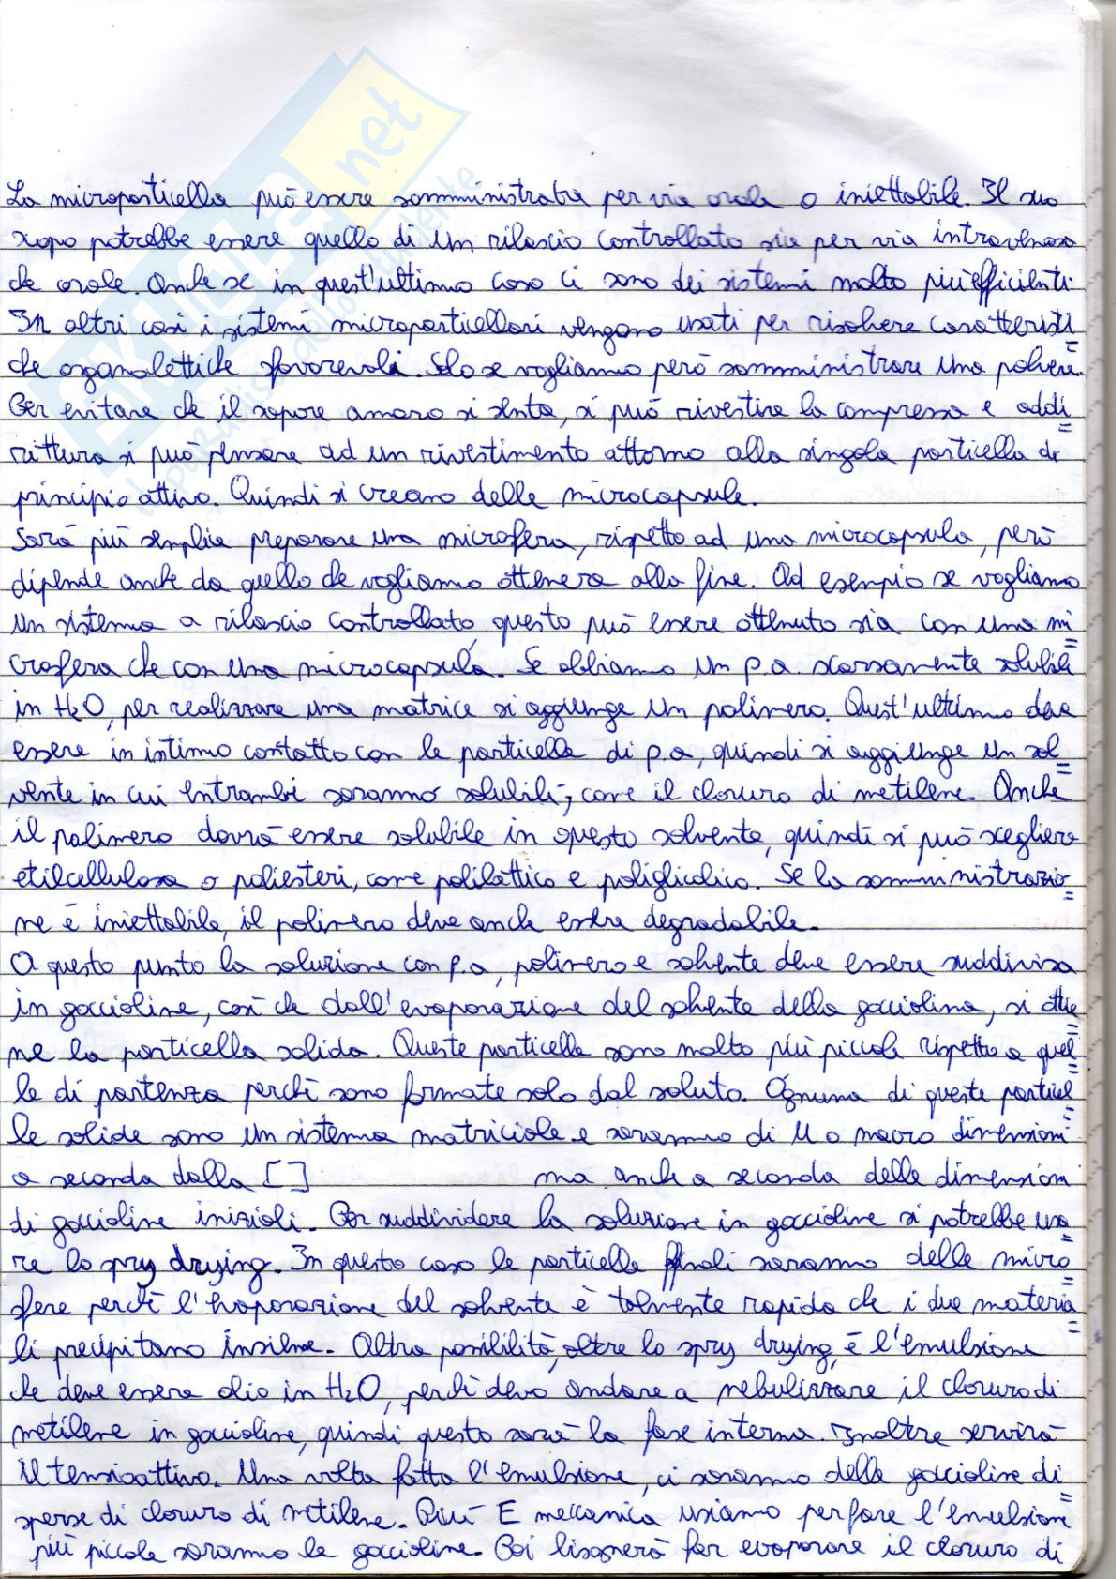 La microparticella può essere somministrata per via orale o iniettabile. Il suo
scopo potrebbe essere quello di un rilascio controllato sia per via intravenosa
che orale. Anche se in quest'ultimo caso ci sono dei sistemi molto più efficienti.
In altri casi i sistemi microparticellari vengono usati per risolvere caratteristi
che organolettiche sfavorevoli. Solo se vogliamo però somministrare una polvere.
Per evitare che il sapore amaro si senta, si può rivestire la compressa e addi
rittura si può pensare ad un rivestimento attorno alla singola particella di
principio attivo. Quindi si creano delle microcapsule.
Sarà più semplice preparare una microsfera, rispetto ad una microcapsula, però
dipende anche da quello che vogliamo ottenere alla fine. Ad esempio se vogliamo
un sistema a rilascio controllato, questo può essere ottenuto sia con una mi
crosfera che con una microcapsula. Se abbiamo un p.a. scarsamente solubile
in H2O, per realizzare una matrice si aggiunge un polimero. Quest'ultimo deve
essere in intimo contatto con le particelle di p.a, quindi si aggiunge un sol
vente in cui entrambi saranno solubili, come il cloruro di metilene. Anche
il polimero dovrà essere solubile in questo solvente, quindi si può scegliere
etilcellulosa o poliesteri, come polilattico e poliglicolico. Se la somministrazio
ne è iniettabile, il polimero deve anche essere degradabile.
A questo punto la soluzione con p.a, polimero e solvente deve essere suddivisa
in goccioline, così che dall'evaporazione del solvente della gocciolina, si ottie
ne la particella solida. Queste particelle sono molto più piccole rispetto a quel
le di partenza perchè sono formate solo dal soluto. Ognuna di queste particel
le solide sono un sistema matriciale e saranno di µ o macro dimensioni
a seconda dalla [ ] ma anche a seconda delle dimensioni
di goccioline iniziali. Per suddividere la soluzione in goccioline si potrebbe usa
re lo spry drying. In questo caso le particelle finali saranno delle micro
sfere perchè l'evaporazione del solvente è talmente rapida che i due materia
li precipitano insieme. Altra possibilità, oltre lo spry drying, è l'emulsione
che deve essere olio in H2O, perchè devo andare a nebulizzare il cloruro di
metilene in goccioline, quindi questo sarà la fase interna. Inoltre servirà
il tensioattivo. Una volta fatta l'emulsione, ci saranno delle goccioline di
sperse di cloruro di metilene. Più E meccanica usiamo per fare l'emulsione
più piccole saranno le goccioline. Poi bisognerà far evaporare il cloruro di